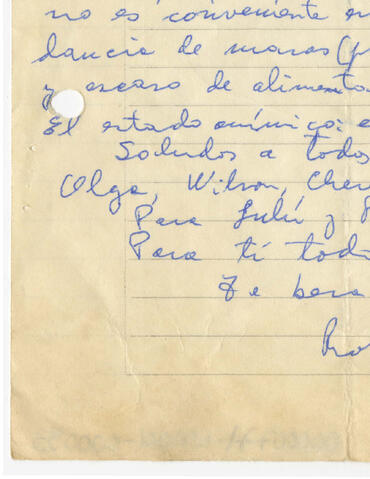 no es conveniente en
dancia de moras (p
y escaso de alimento.
El estado anímico: e
Saludos a todos
Olga, Wilson, Cher
Para Lulú y
Para tí tod
Te besa